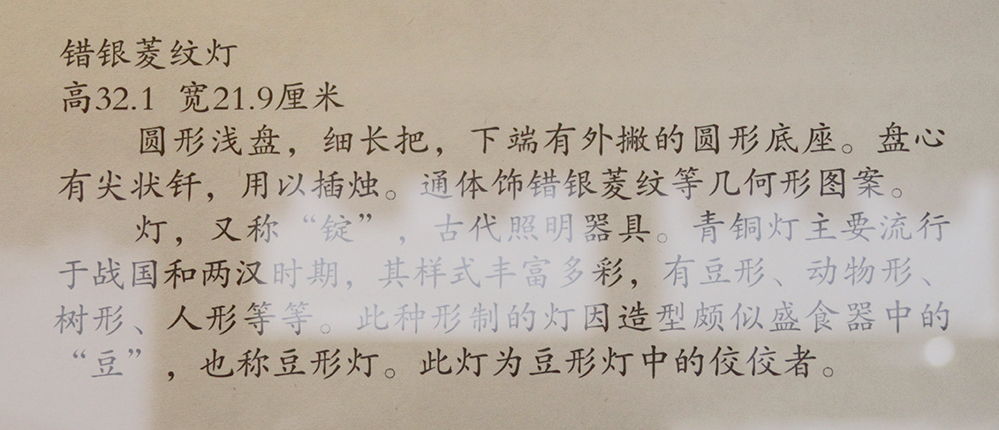 错银菱纹灯
高32.1 宽21.9厘米
圆形浅盘，细长把，下端有外撇的圆形底座。盘心
有尖状钎，用以插烛。通体饰错银菱纹等几何形图案。
灯，又称“锭”，古代照明器具。青铜灯主要流行
于战国和两汉时期，其样式丰富多彩，有豆形、动物形、
树形、人形等等。此种形制的灯因造型颇似盛食器中的
“豆”，也称豆形灯。此灯为豆形灯中的佼佼者。